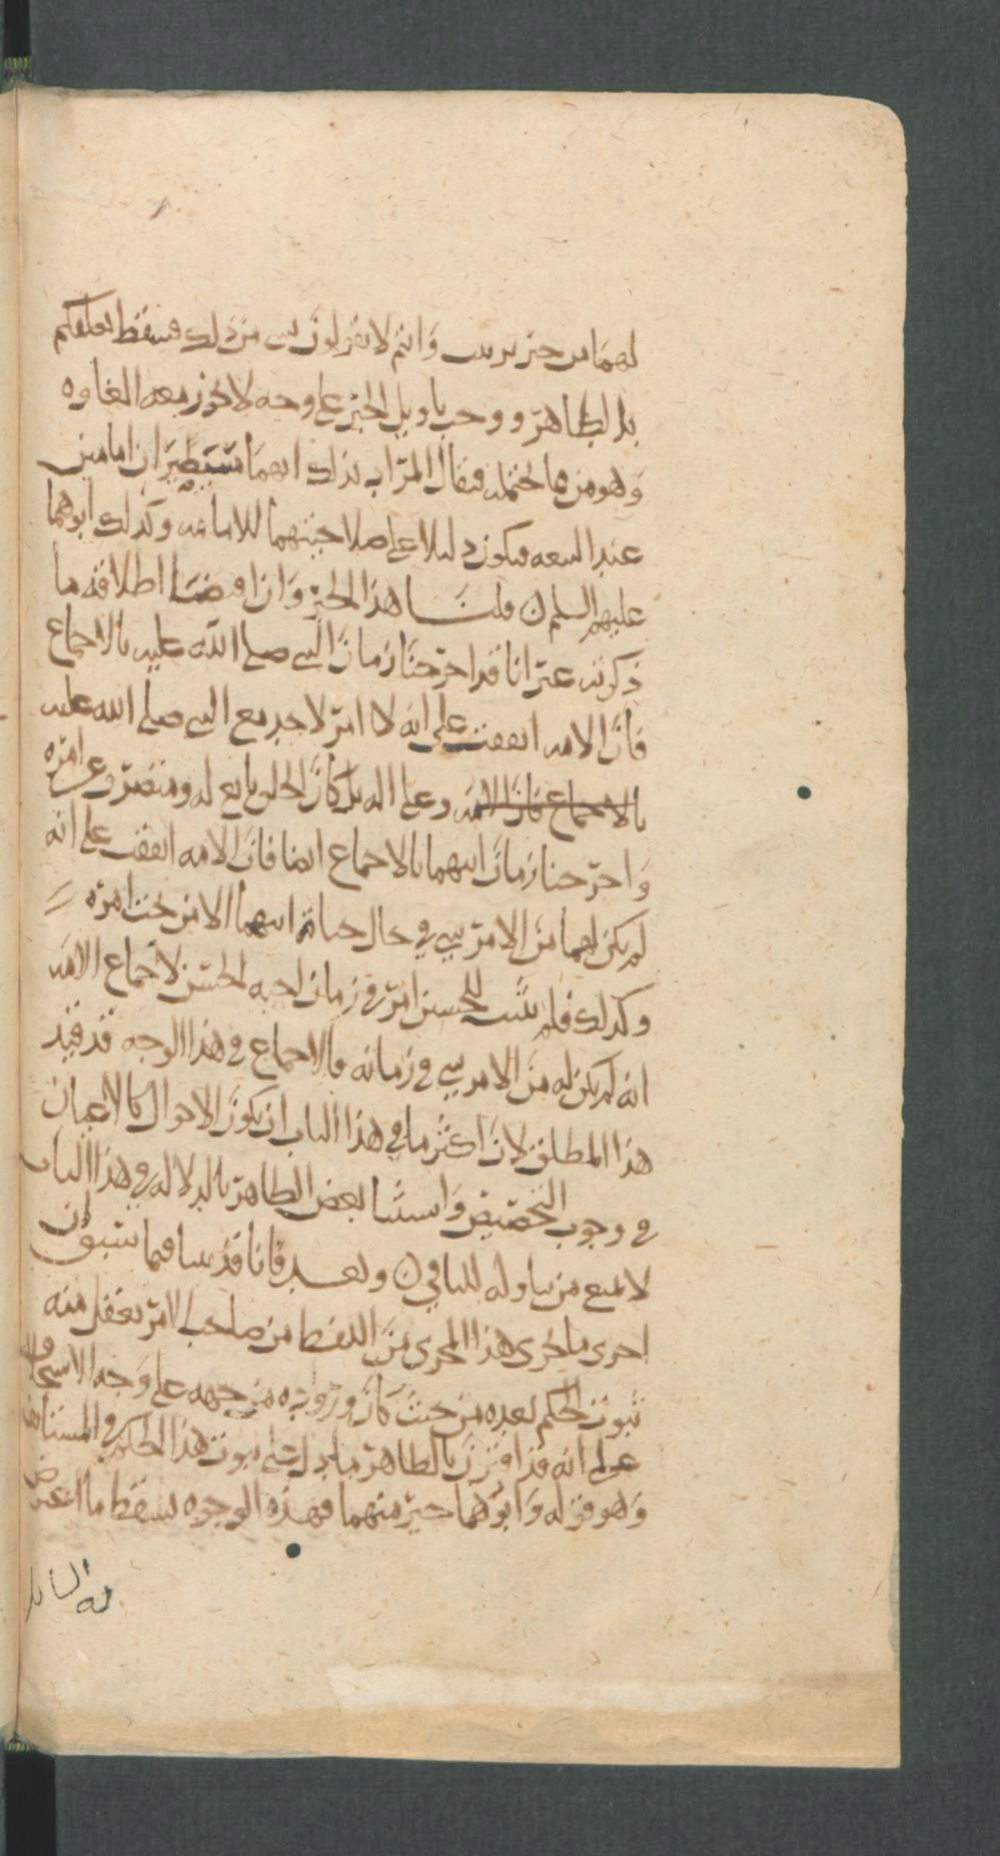 لهما من حين يريد وانتم لا تقولون بشي من ذلك فسقط تعلقكم
بالظاهر ووجب تاويل الخبر على وجه لا يجوز معه
وهو من ما يحتمله فيقال المراد بذلك انهما سيصيران امامين
عند البيعه فيكون دليلا على صلاحيتهما للامامه وكذلك ابوهما
عليهم السلم ن قلنا هذا الخبر وان اقتضا اطلاقه ما
ذكرته عير انا قد اخرجنا زمان النبي صلى الله عليه بالاجماع
فان الامه اتفقت على انه لا امر لاحد مع النبي صلى الله عليه
بالاجماع فان الامه وعلى اله بل كان الخلق تابع له ومتصرف عن امره
واخرجنا زمان ابيهما بالاجماع ايضا فان الامه اتفقت على انه
لم يكن لهما من الامر شي في حال حياة ابيهما الا من تحت امره
وكذلك فلم يثبت للحسين امر في زمان اخيه الحسن لاجماع الامه
انه لم يكن له من الامر شي في زمانه فالاجماع في هذا الوجه قد قيد
هذا المطلق لان اكثر ما في هذا الباب ان يكون الاحوال كالاعيان
في وجوب التخصيص واستثنا بعض الظاهر بالدلاله في هذا الباب
لا يمنع من تناوله للباقي ن وبعد فانا قد بينا فيما سبق ان
اجرى ما جرى هذا المجرى من اللفظ من صاحب الامر تعقل منه
ثبوت الحكم بعده من حيث كان وروده من جهه على وجه الاستخلاف
على انه قد اقترن بالظاهر ما يدل على ثبوت هذا الحكم في المستانف
وهو قوله وابوهما خير منهما فهذه الوجوه يسقط ما اعترض
به السايل